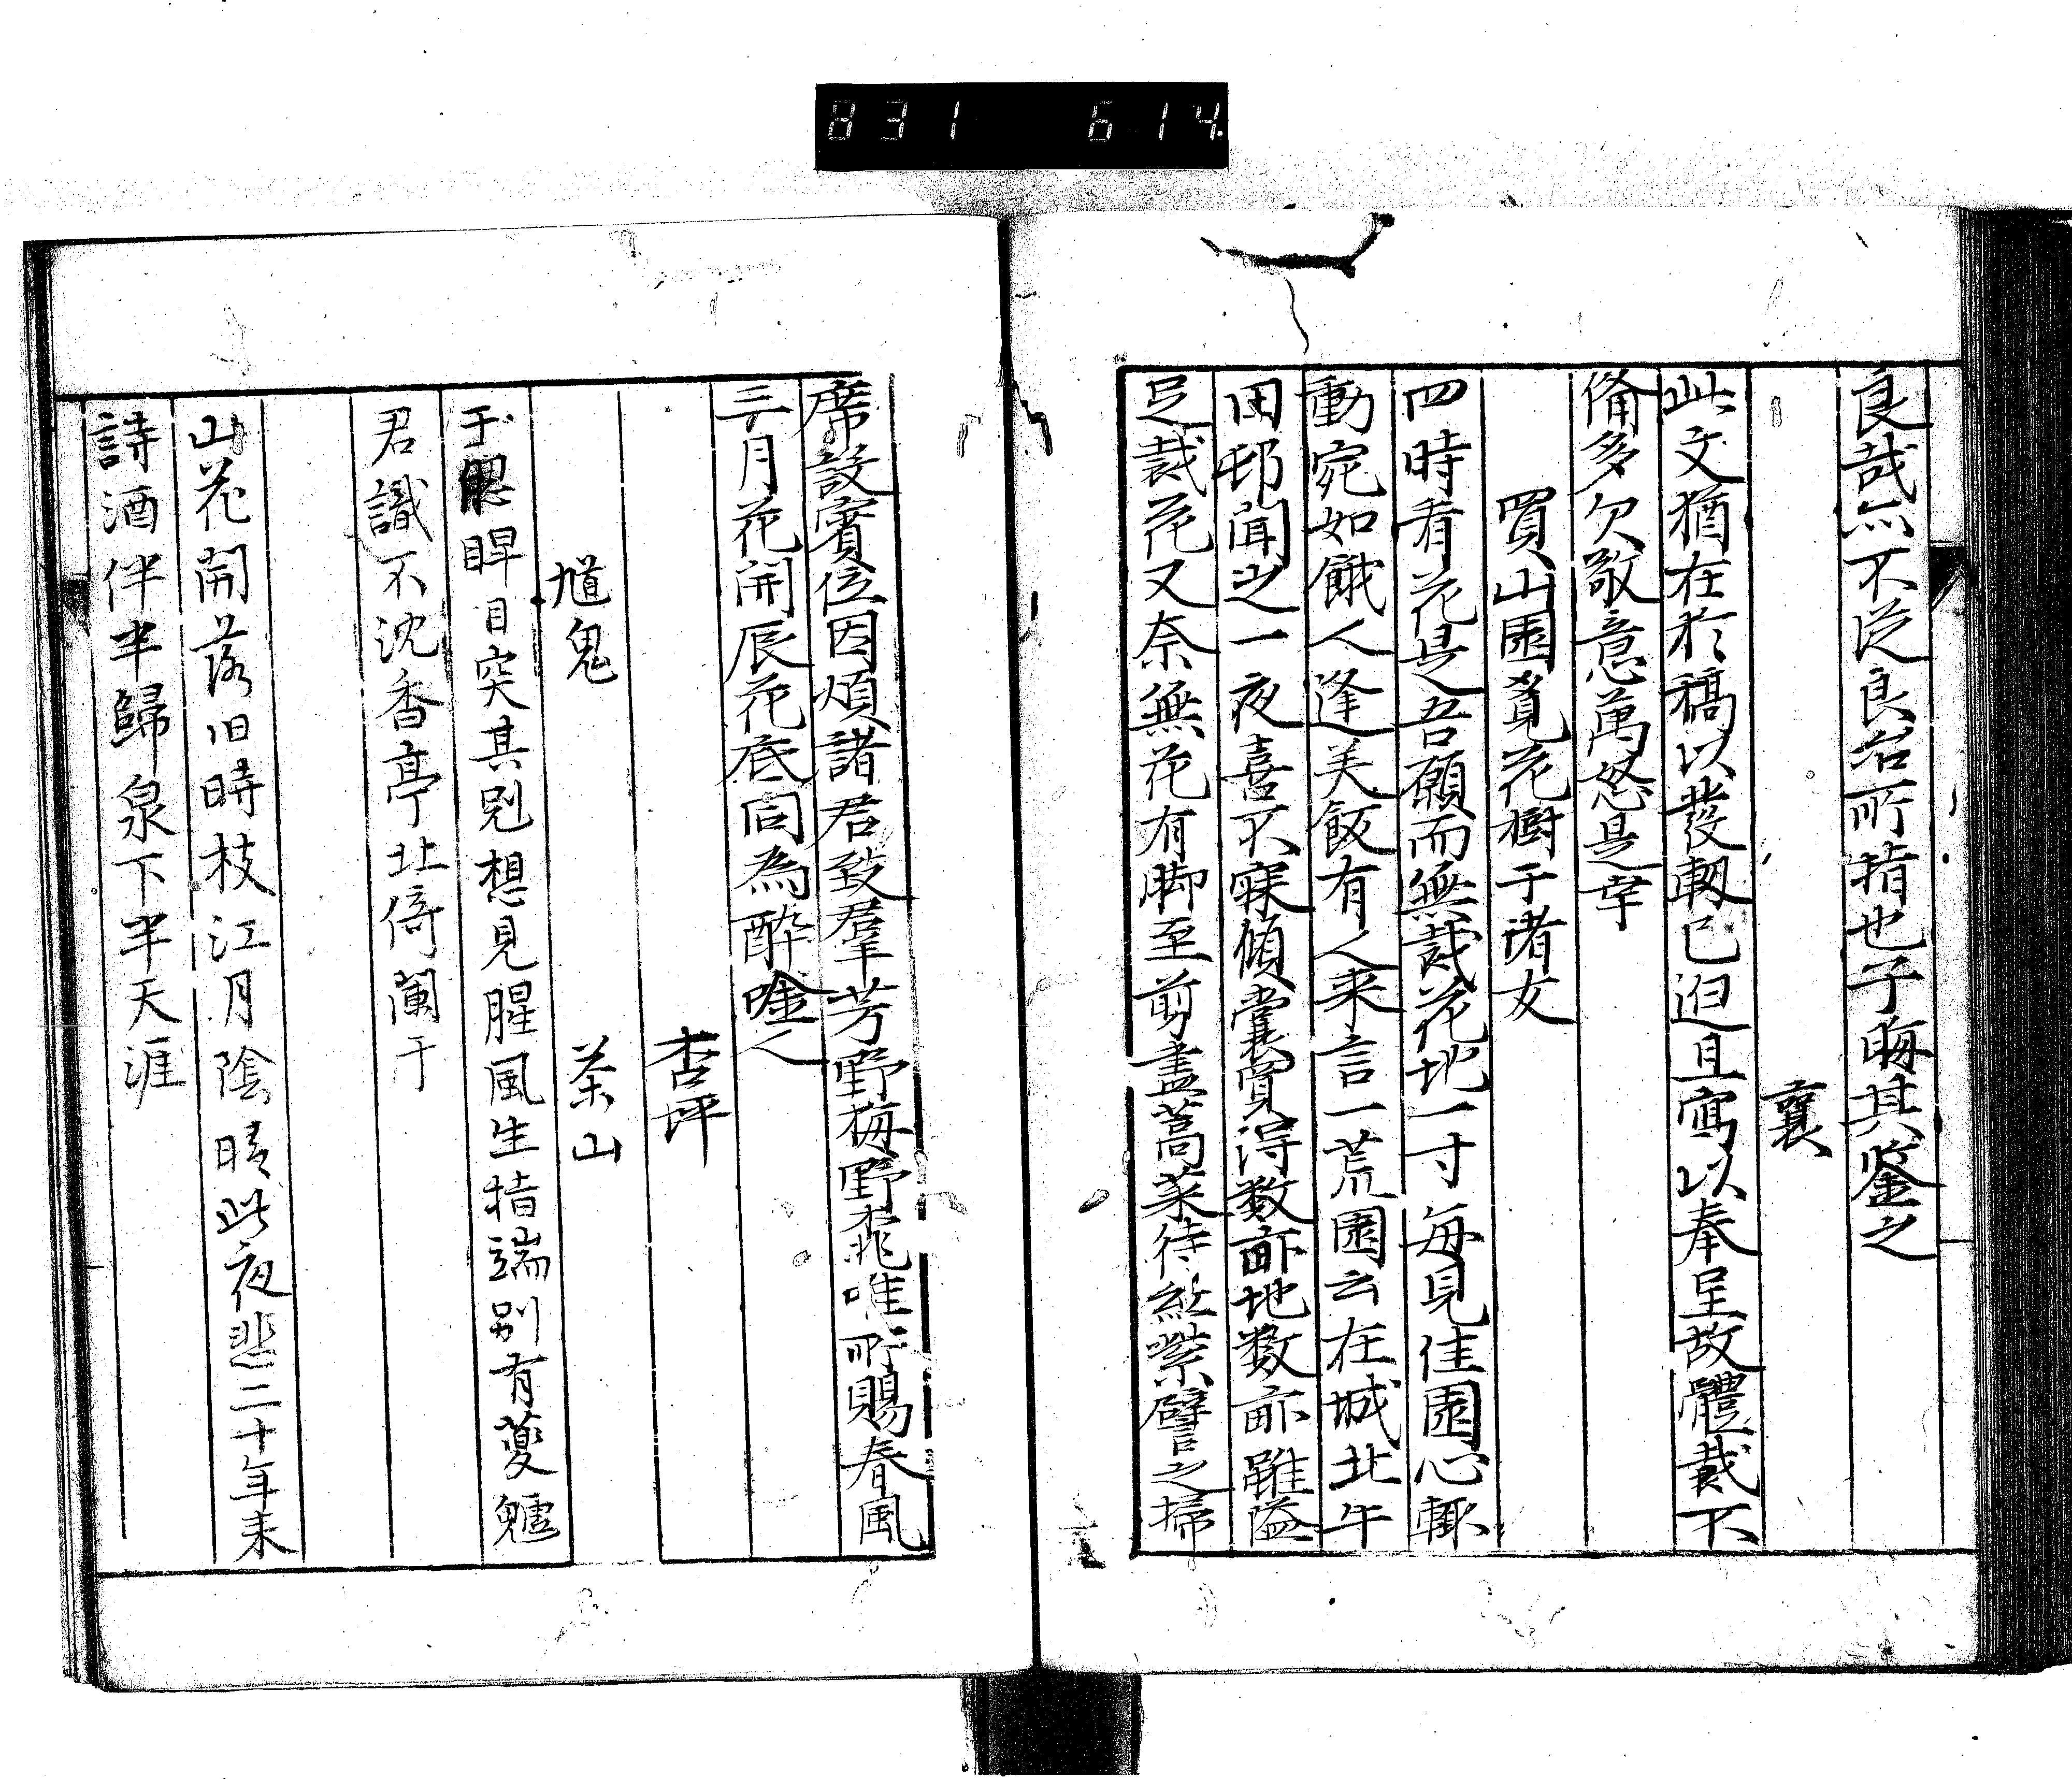 831 614
良哉亦不泛良治所指也子晦其鉴之
襄
此文猶在於稿以發軔已迫且寫以奉呈故體裁不
備多欠敬意萬恕是幸
買山園覓花樹于諸女
四時看花是吾願而無栽花地一寸每見佳園心輙
動宛如餓人逢美飯有人来言一荒園云在城北午
田邨聞之一夜喜不寐傾囊買得数畝地数畝雖隘
足裁花又奈無花有脚至剪盡蒿萊待紅紫譬之掃
席設賓位因煩諸君致羣芳野梅野桃唯所賜春風
三月花開辰花底同為酔嗑人
杏坪
馗鬼 茶山
于腮睅目突其兇想見腥風生指端别有夔魖
君識不沈香亭北倚闌干
山花開落旧時枝江月陰晴此夜悲二十年来
詩酒伴半歸泉下半天涯